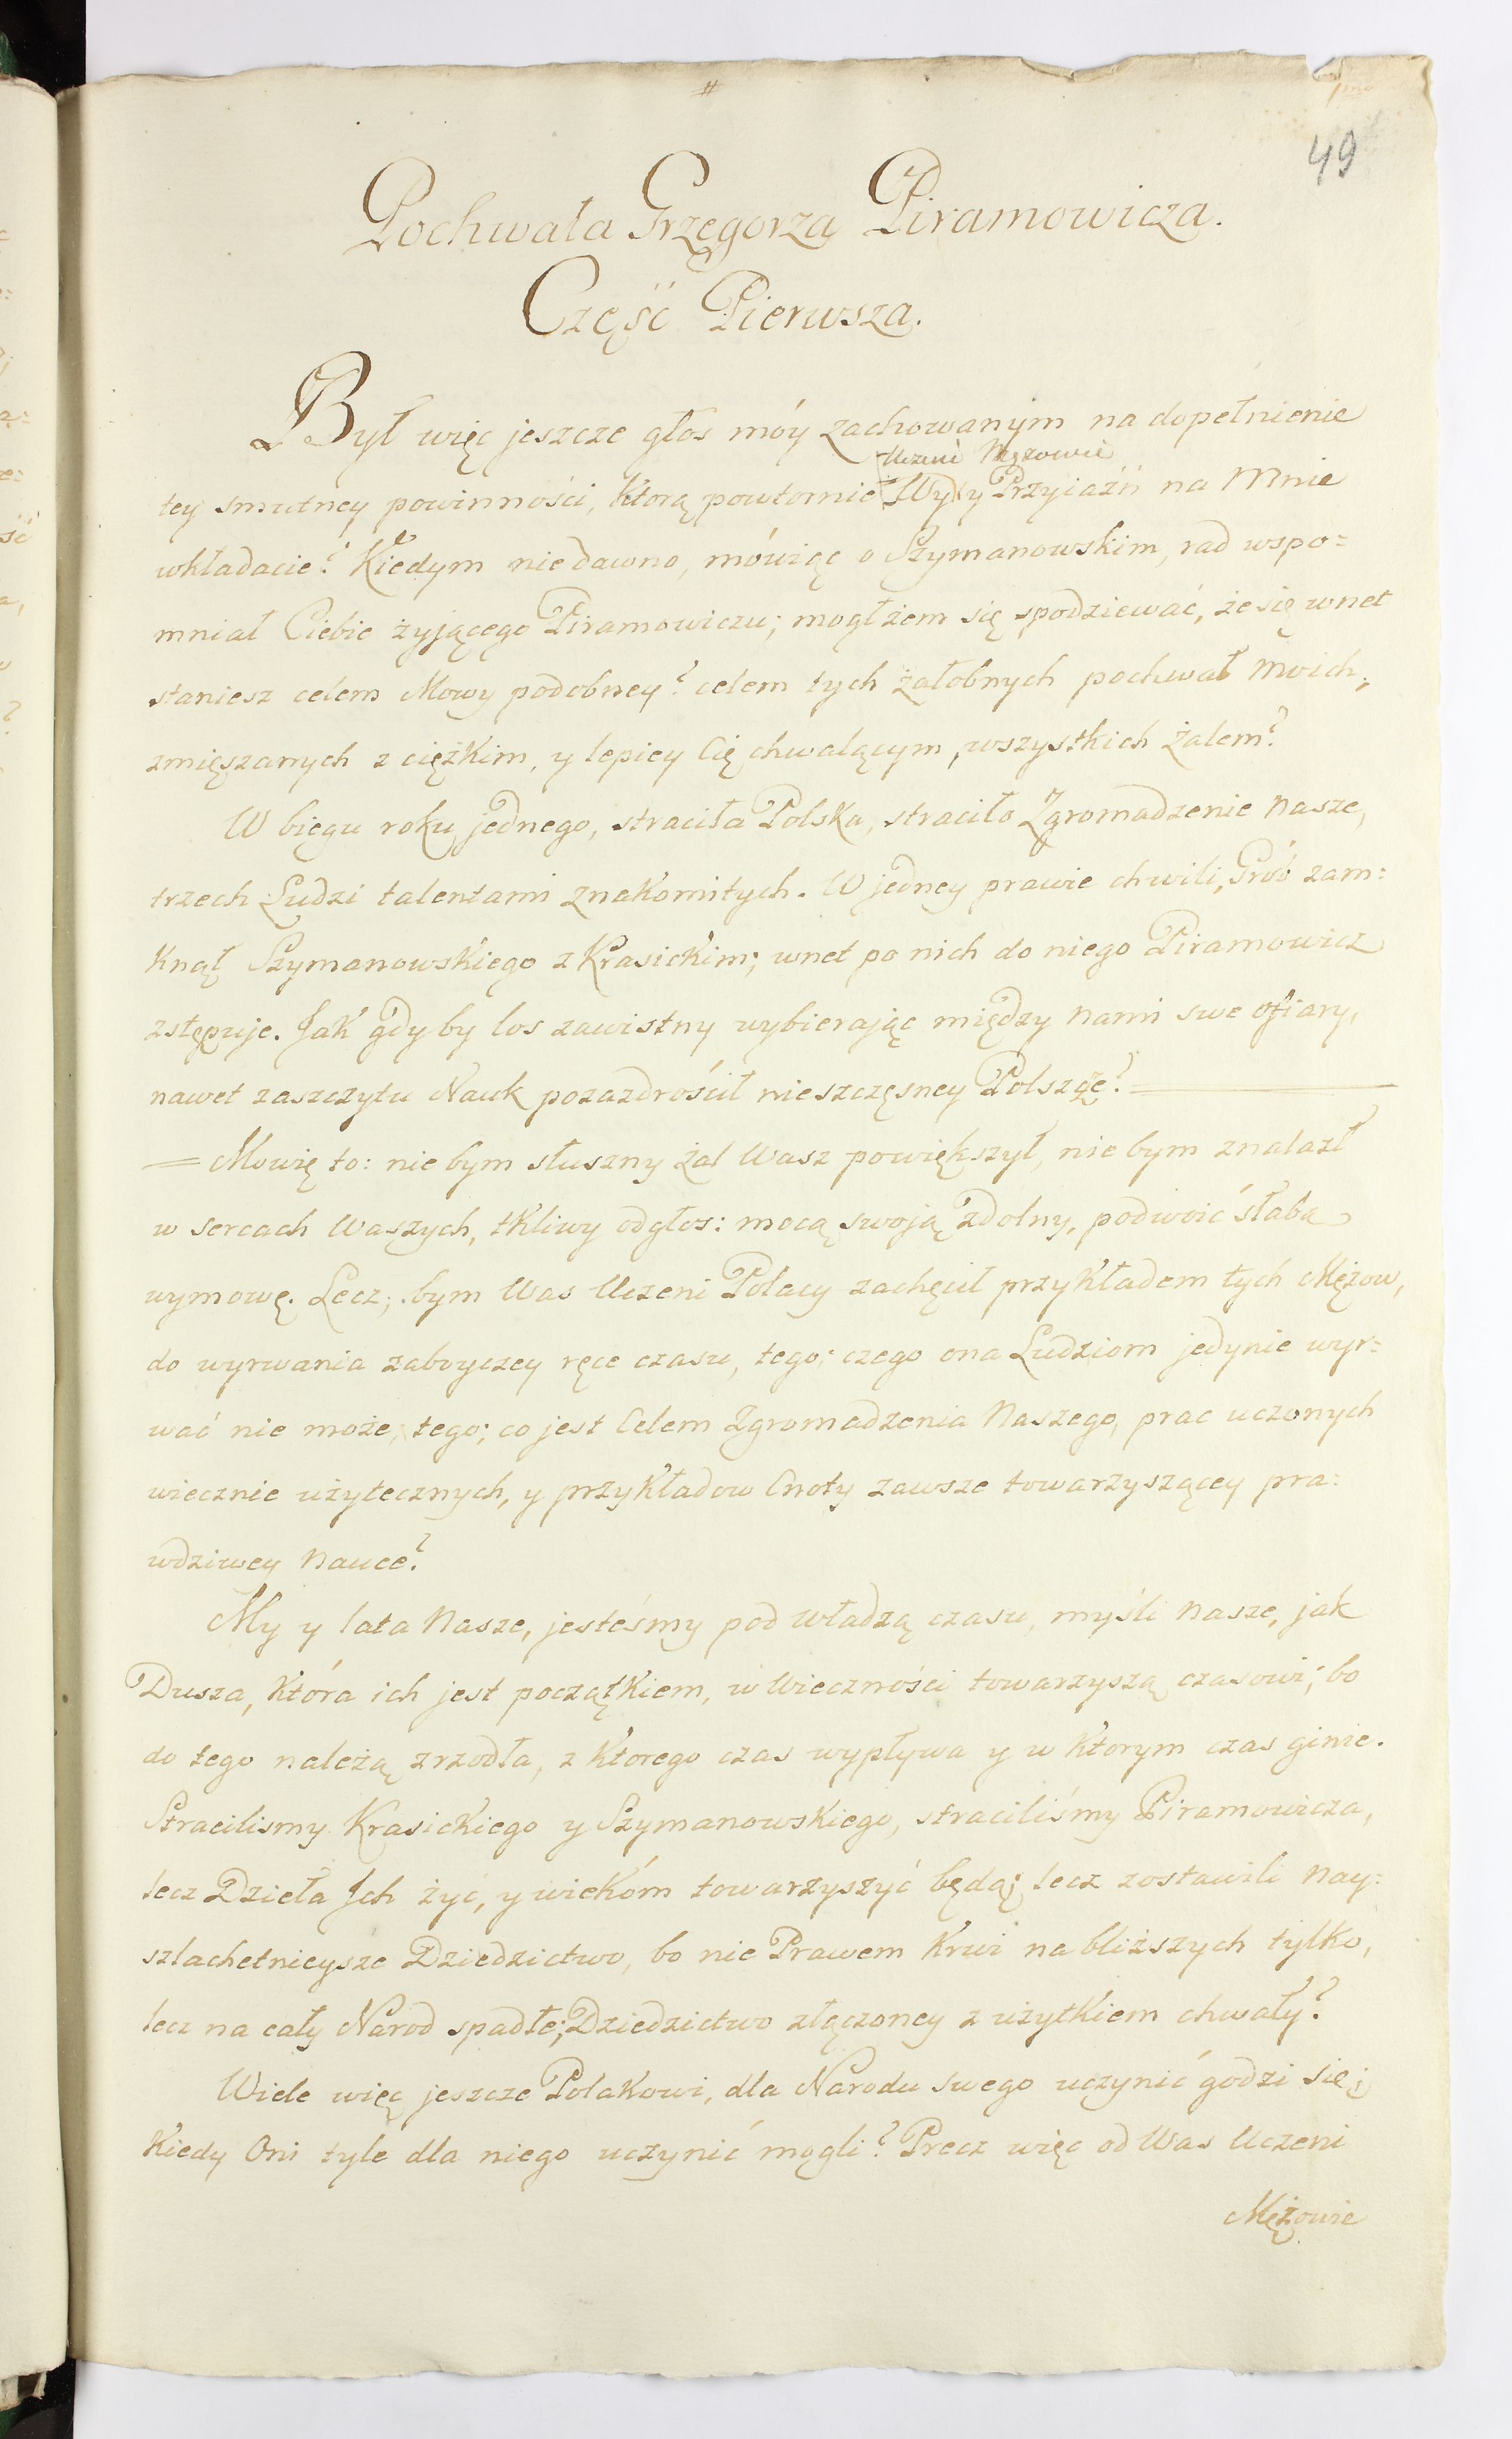 49
Pochwała Grzegorza Piramowicza.
Część Pierwsza.
Był więc jeszcze głos móy zachowanym na dopełnienie
Uczeni Mężowie
tey smutney powinności, którą powtornie Wy y Przyiaźń na Mnie
wkładacie? Kiedym niedawno, mówiąc o Szymanowskim, rad wspo=
mniał Ciebie żyjącego Piramowiczu; mogłżem się spodziewać, że się wnet
staniesz celem Mowy podobney? celem tych żałobnych pochwał moich,
zmięszanych z ciężkim, y lepiey Cię chwalącym, wszystkich żalem?
W biegu roku jednego, straciła Polska, straciło Zgromadzenie nasze,
trzech Ludzi talentami znakomitych. W jedney prawie chwili, Grób zam=
knął Szymanowskiego z Krasickim; wnet po nich do niego Piramowicz
zstępuje. Jak gdyby los zawistny wybierając między nami swe ofiary,
nawet zaszczytu Nauk pozazdrościł nieszczęsney Polszcze?
= Mowię to: nie bym słuszny żal Wasz powiększył, nie bym znalazł
w sercach Waszych, tkliwy odgłos: mocą swoją zdolny, podwoić słabą
wymowę. Lecz; bym Was Uczeni Polacy zachęcił przykładem tych Mężow,
do wyrwania zaboyczey ręce czasu, tego; czego ona Ludziom jedynie wyr=
wać nie może, tego; co jest Celem Zgromadzenia Naszego, prac uczonych
wiecznie użytecznych, y przykładow Cnoty zawsze towarzyszącey pra=
wdziwey nauce?
My y lata Nasze, jesteśmy pod władzą czasu, myśli nasze, jak
Dusza, która ich jest początkiem, w Wieczności towarzyszą czasowi; bo
do tego należą zrzodła, z ktorego czas wypływa y w ktorym czas ginie.
Stracilismy Krasickiego y Szymanowskiego, straciliśmy Piramowicza,
lecz Dzieła Ich żyć, y wiekóm towarzyszyć będą; lecz zostawili nay=
szlachetnieysze Dziedzictwo, bo nie Prawem krwi na bliższych tylko,
lecz na cały Narod spadłe; Dziedzictwo złączoney z użytkiem chwały?
Wiele więc jeszcze Polakowi, dla Narodu swego uczynić godzi się;
kiedy Oni tyle dla niego uczynić mogli? Precz więc od Was Uczeni
Mężowie